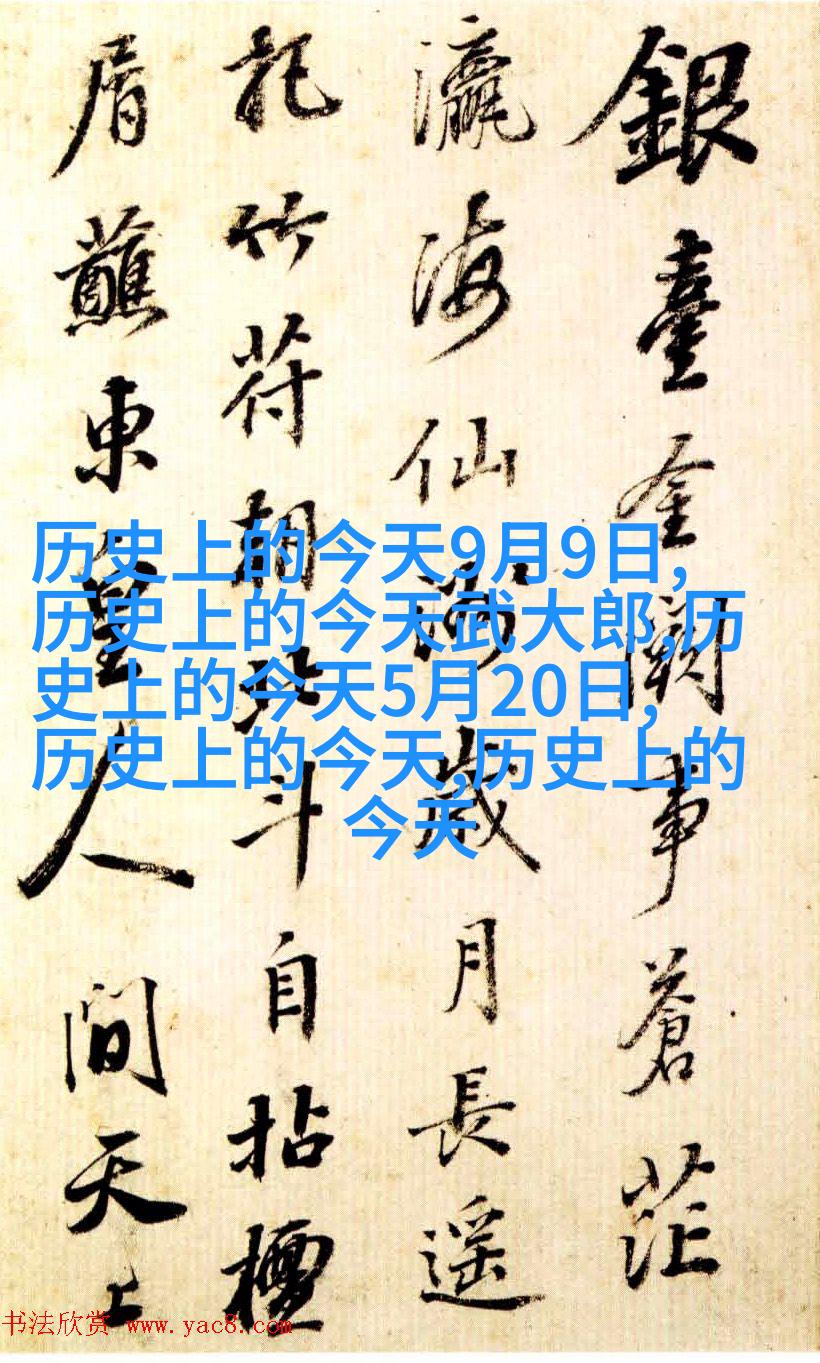 銀臺金闕事蒼茫
瀛海仙歲月長遥
記竹符朝北斗自拈檀
屑蘸東皇人間天上
历史上的今天9月9日,
历史上的今天武大郎,历
史上的今天5月20日,
历史上的今天,历史上的
今天
书法欣赏 www.yac8.com